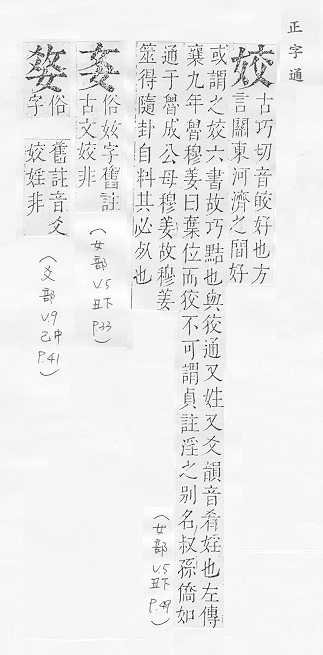 正字通
姣
古巧切音皎好也方
言關東河濟之間好
或謂之姣六書故巧黠也與狡通又姓又爻韻音肴婬也左傳
襄九年魯穆姜曰棄位而狡不可謂貞註淫之別名叔孫僑如
通于魯成公母穆姜故穆姜
筮得隨卦自料其必死也
(女部 V.5 丑下 P.49)
㚣
俗姣字舊註
古文姣非
(女部 V.5 丑下 P.33)
俗 舊註音爻
字 姣婬非
(爻部 V.9 己中 P.41)